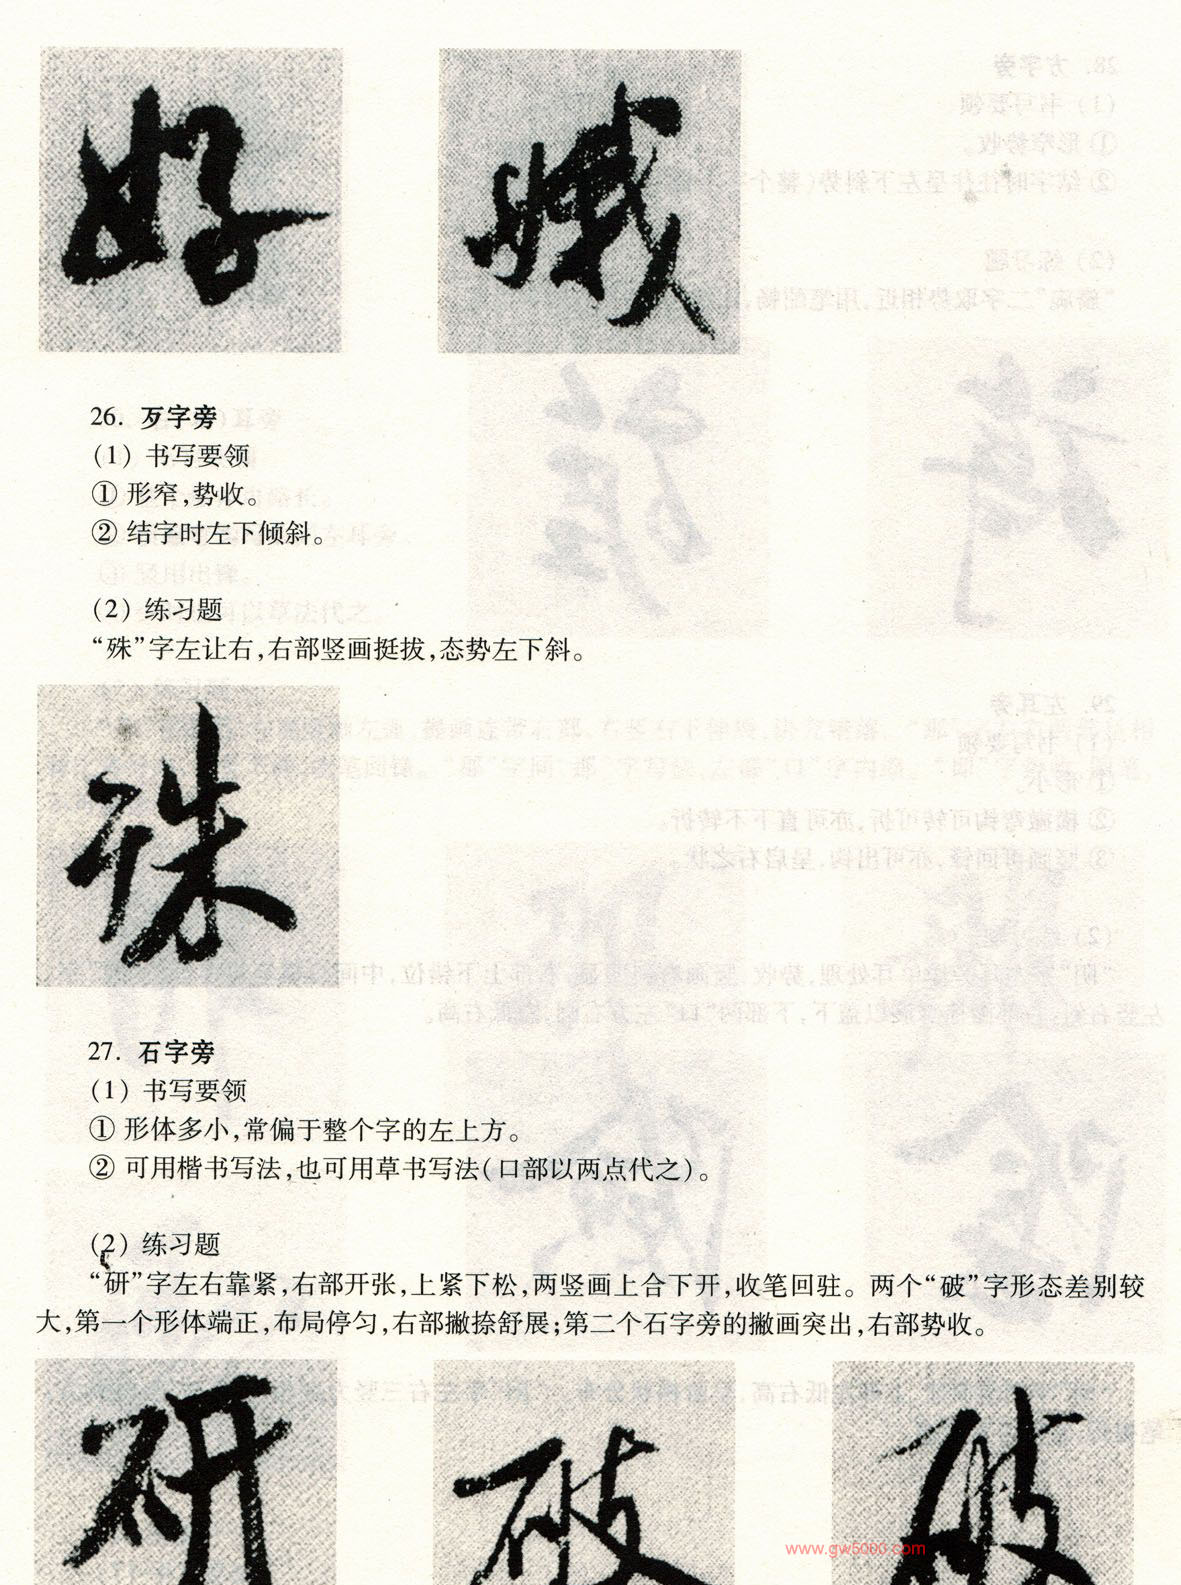 好 娥
26. 歹字旁
(1) 书写要领
① 形窄,势收。
② 结字时左下倾斜。
(2) 练习题
“殊”字左让右,右部竖画挺拔,态势左下斜。
殊
27. 石字旁
(1) 书写要领
① 形体多小,常偏于整个字的左上方。
② 可用楷书写法,也可用草书写法(口部以两点代之)。
(2) 练习题
“研”字左右靠紧,右部开张,上紧下松,两竖画上合下开,收笔回驻。两个“破”字形态差别较
大,第一个形体端正,布局停匀,右部撇捺舒展;第二个石字旁的撇画突出,右部势收。
研 破 破
www.gw5000.com